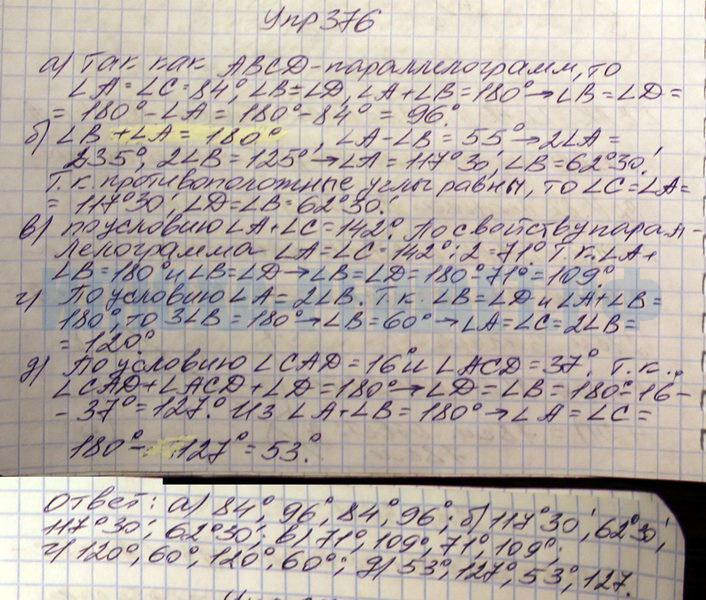 Упр 376
а) Так как ABCD-параллелограмм, то
∠A=∠C=84°, ∠B=∠D, ∠A+∠B=180°→∠B=∠D=
=180°-∠A=180°-84°=96°.
б) ∠B+∠A=180°, ∠A-∠B=55°→2∠A=
235°, 2∠B=125°→∠A=117°30', ∠B=62°30'.
Т.к. противоположные углы равны, то ∠C=∠A=
=117°30', ∠D=∠B=62°30'.
в) По условию ∠A+∠C=142°. По свойству парал-
лелограмма ∠A=∠C=142°:2=71°. Т.к. ∠A+
∠B=180° и ∠B=∠D→∠B=∠D=180°-71°=109°.
г) По условию ∠A=2∠B. Т.к. ∠B=∠D и ∠A+∠B=
180°, то 3∠B=180°→∠B=60°→∠A=∠C=2∠B=
=120°.
д) По условию ∠CAD=16° и ∠ACD=37°. Т.к.
∠CAD+∠ACD+∠D=180°→∠D=∠B=180°-16-
-37°=127°. Из ∠A+∠B=180°→∠A=∠C=
180°-127°=53°.
Ответ: а) 84°, 96°, 84°, 96°; б) 117°30', 62°30',
117°30', 62°30'; в) 71°, 109°, 71°, 109°;
г) 120°, 60°, 120°, 60°; д) 53°, 127°, 53°, 127.